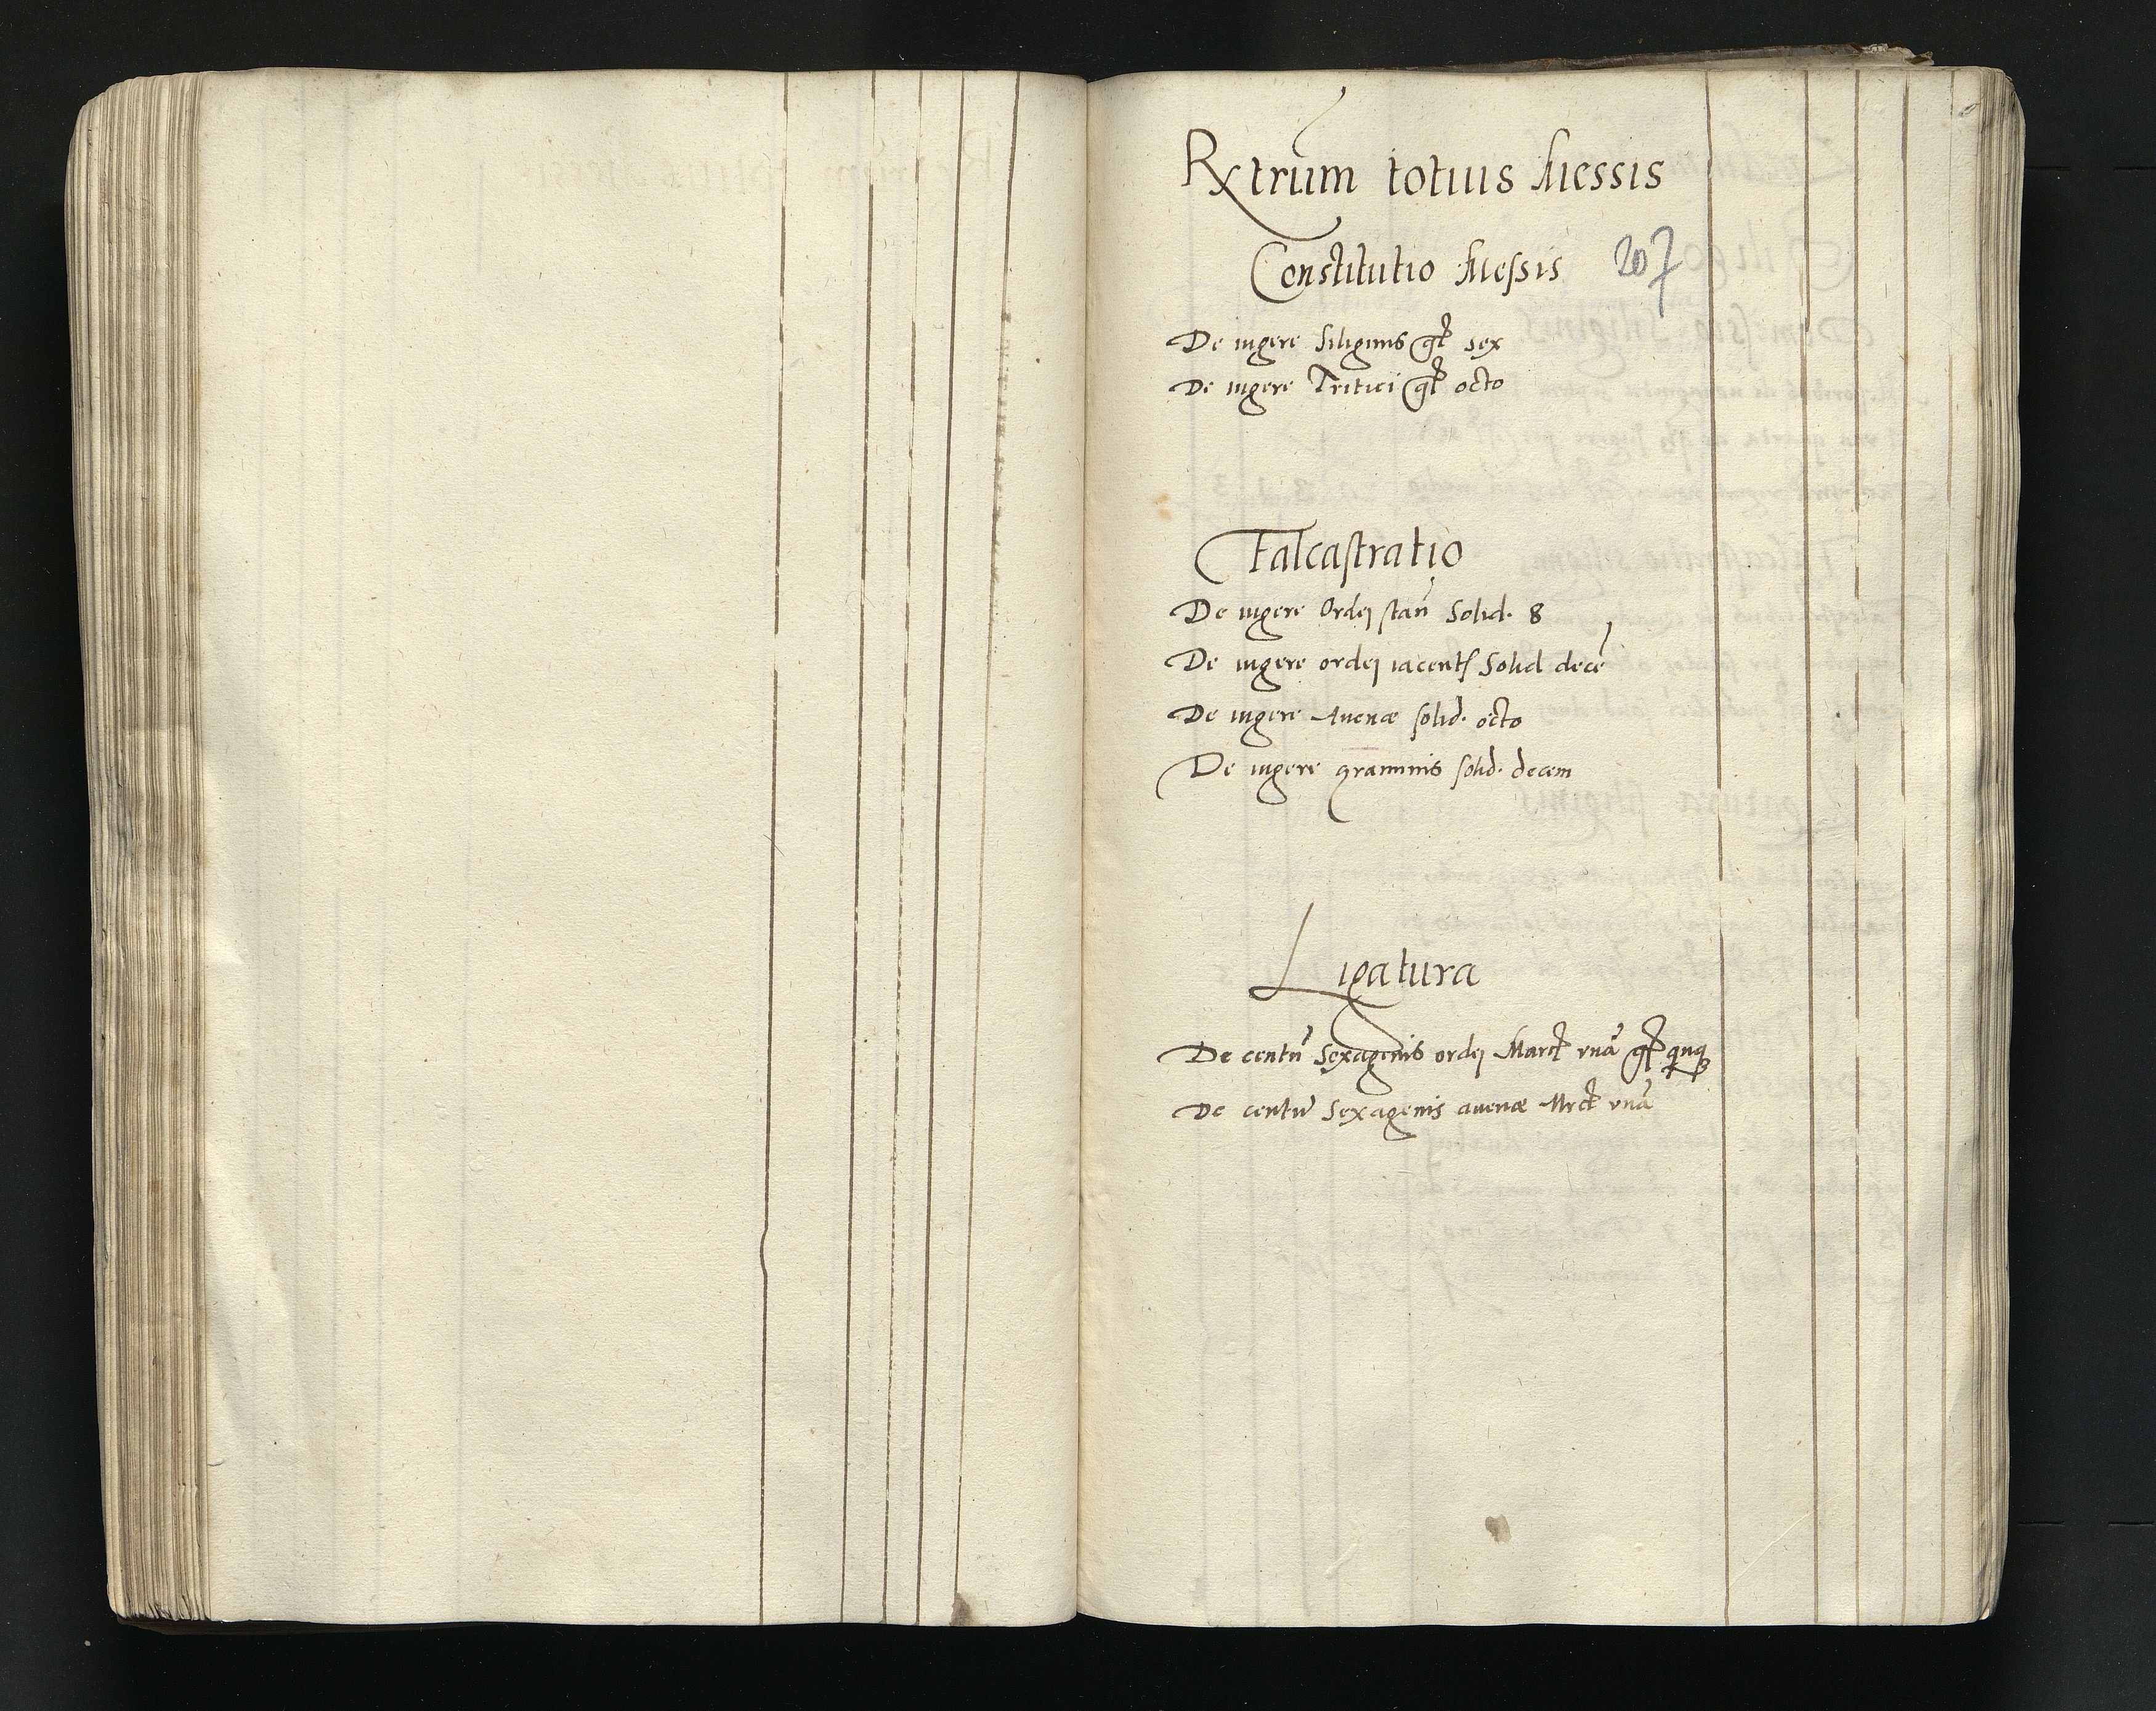 Rxtrum totius Messis
Constitutio Messis 207
De iugere Siliginis gt sex
De iugere Tritici gt octo
Falcastratio
De iugere Ordej stan̄ Solid. 8
De iugere ordej iacent Solid decē
De iugere Auenæ solid. octo
De iugere graminis solid. decem
Ligatura
De centū Sexagenis ordej Marct vnā gt quq
De centū Sexagenis auenæ Mrct vnā